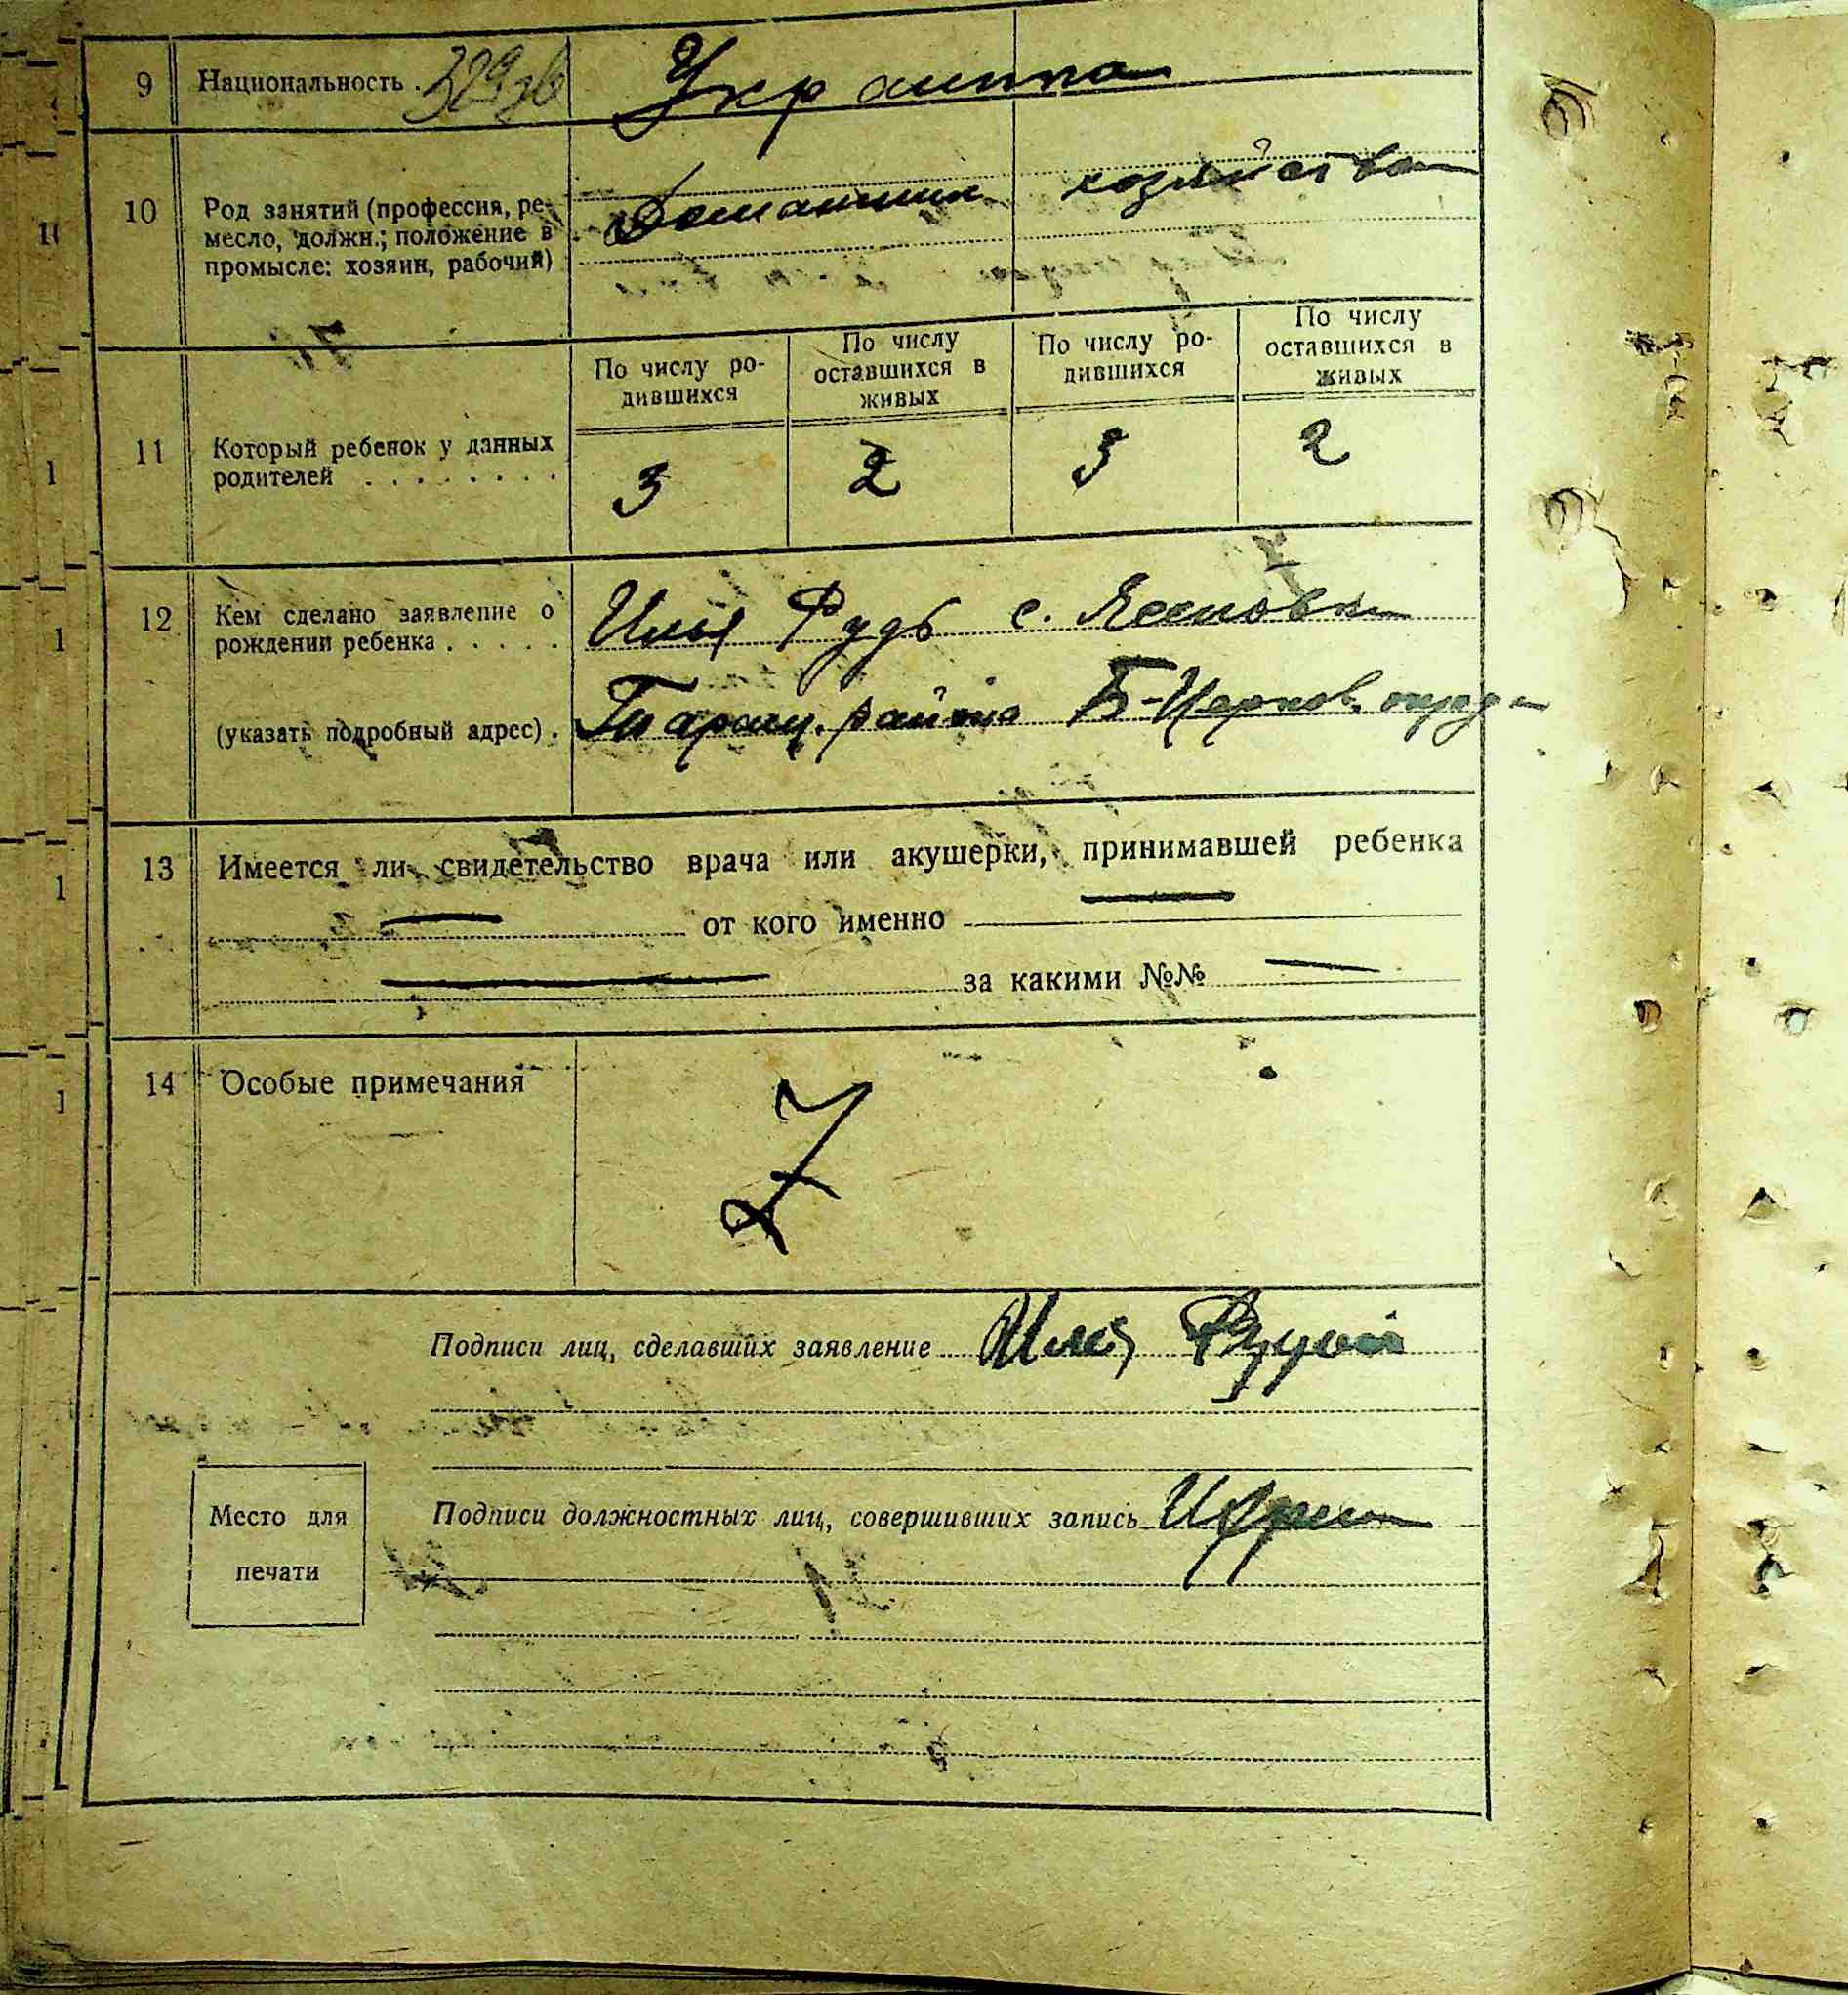 9 Национальность . Украинца
10 Род занятий (профессия, ре-
месло, должн.; положение в
промысле: хозяин, рабочий)
хозяйства
По числу ро-
дившихся
По числу
оставшихся в
живых
По числу ро-
дившихся
По числу
оставшихся в
живых
11 Который ребенок у данных
родителей . . . . . . . .
3 2 3 2
12 Кем сделано заявление о
рождении ребенка . . . . .
Илья Рудь с.
(указать подробный адрес) .
Таращ. района Б-Церков. округ
13 Имеется ли свидетельство врача или акушерки, принимавшей ребенка
от кого именно
за какими №№
14 Особые примечания
Подписи лиц, сделавших заявление
Место для
печати
Подписи должностных лиц, совершивших запись